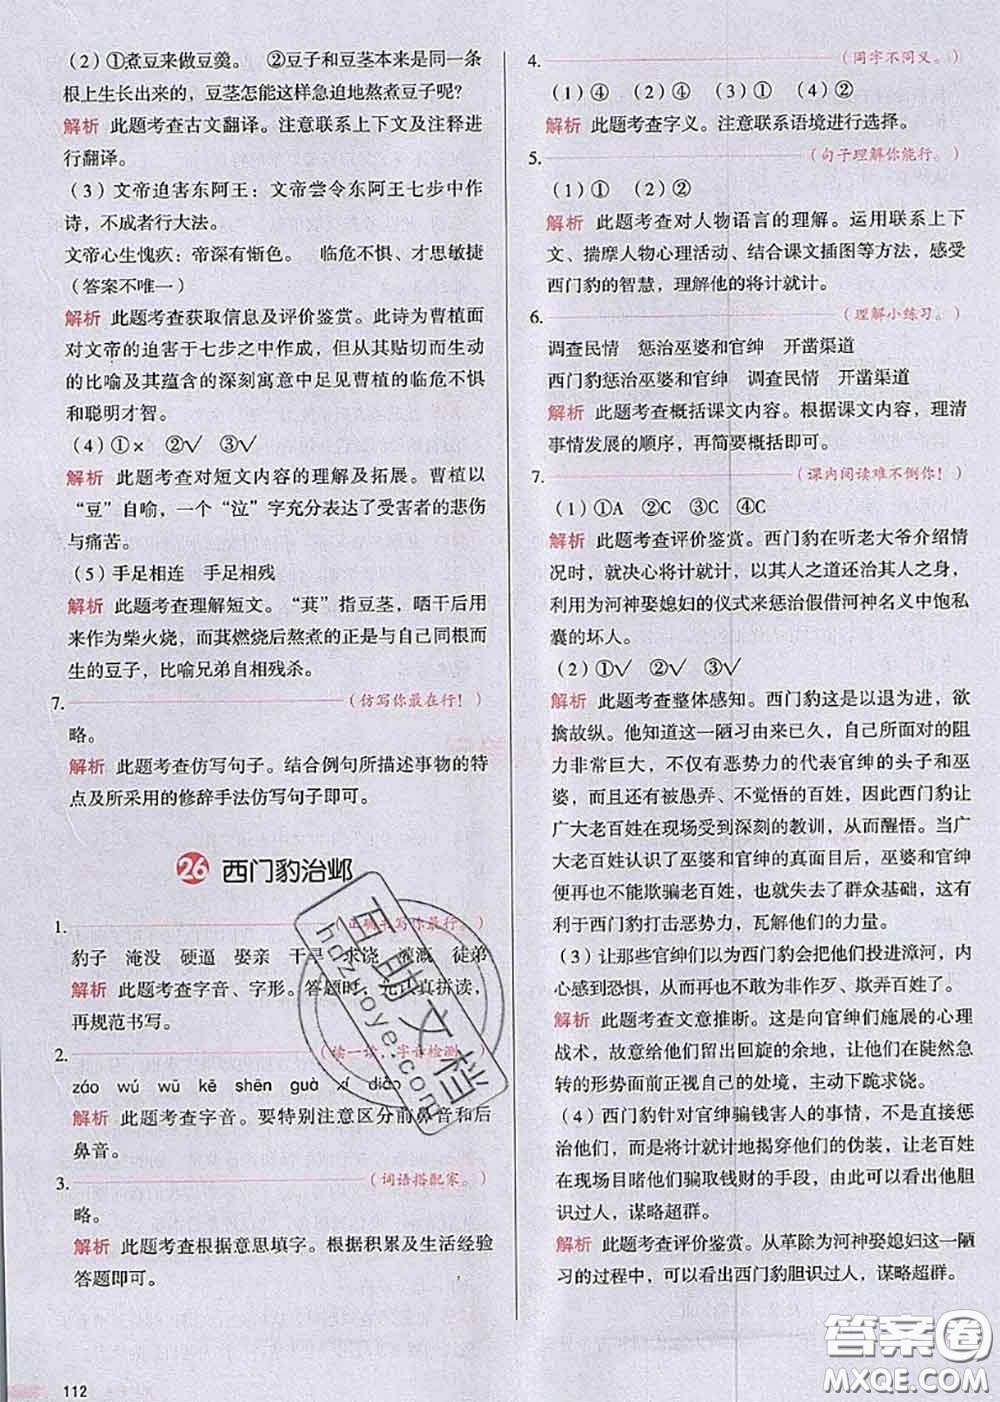 （2）①煮豆来做豆羹。　②豆子和豆茎本来是同一条
根上生长出来的，豆茎怎能这样急迫地熬煮豆子呢？
解析　此题考查古文翻译。注意联系上下文及注释进
行翻译。
（3）文帝迫害东阿王：文帝尝令东阿王七步中作
诗，不成者行大法。
文帝心生愧疚：帝深有惭色。　临危不惧、才思敏捷
（答案不唯一）
解析　此题考查获取信息及评价鉴赏。此诗为曹植面
对文帝的迫害于七步之中作成，但从其贴切而生动
的比喻及其蕴含的深刻寓意中足见曹植的临危不惧
和聪明才智。
（4）①×　②√　③√
解析　此题考查对短文内容的理解及拓展。曹植以
“豆”自喻，一个“泣”字充分表达了受害者的悲伤
与痛苦。
（5）手足相连　手足相残
解析　此题考查理解短文。“萁”指豆茎，晒干后用
来作为柴火烧，而萁燃烧后熬煮的正是与自己同根而
生的豆子，比喻兄弟自相残杀。
7.（仿写你最在行！）
略。
解析　此题考查仿写句子。结合例句所描述事物的特
点及所采用的修辞手法仿写句子即可。
26 西门豹治邺
1.（正确书写你最行。）
豹子　淹没　硬逼　娶亲　干旱　求饶　灌溉　徒弟
解析　此题考查字音、字形。答题时，先认真拼读，
再规范书写。
2.（读一读，字音检测。）
záo　wú　wū　kē　shēn　guà　xí　diāo
解析　此题考查字音。要特别注意区分前鼻音和后
鼻音。
3.（词语搭配家。）
略。
解析　此题考查根据意思填字。根据积累及生活经验
答题即可。
112
4.（同字不同义。）
（1）④　（2）①　（3）③　（4）②
解析　此题考查字义。注意联系语境进行选择。
5.（句子理解你能行。）
（1）①　（2）②
解析　此题考查对人物语言的理解。运用联系上下
文、揣摩人物心理活动、结合课文插图等方法，感受
西门豹的智慧，理解他的将计就计。
6.（理解小练习。）
调查民情　惩治巫婆和官绅　开凿渠道
西门豹惩治巫婆和官绅　调查民情　开凿渠道
解析　此题考查概括课文内容。根据课文内容，理清
事情发展的顺序，再简要概括即可。
7.（课内阅读难不倒你！）
（1）①A　②C　③C　④C
解析　此题考查评价鉴赏。西门豹在听老大爷介绍情
况时，就决心将计就计，以其人之道还治其人之身，
利用为河神娶媳妇的仪式来惩治假借河神名义中饱私
囊的坏人。
（2）①√　②√　③√
解析　此题考查整体感知。西门豹这是以退为进，欲
擒故纵。他知道革除这一陋习由来已久，自己面对的阻
力非常巨大，不仅有恶势力的代表官绅的头子和巫
婆，而且还有被愚弄、不觉悟的百姓，因此西门豹让
广大老百姓在现场受到深刻的教训，从而醒悟。当广
大老百姓认识了巫婆和官绅的真面目，巫婆和官绅再
也不能欺骗老百姓，就失去了群众基础，这样，有
利于西门豹打击恶势力，瓦解他们的力量。
（3）让那些官绅以为西门豹会把他们投进漳河，内
心感到恐惧，从而达到让他们不敢再为非作歹、欺弄百姓的目的。
解析　此题考查文意推断。这是向官绅们施展的心理
战术，故意给他们留出回旋的余地，让他们在陡然急
转的形势面前正视自己的处境，主动下跪求饶。
（4）西门豹针对官绅骗钱害人的事情，不是直接惩
治他们，而是将计就计地揭穿他们的伪装，让老百姓
现场目睹他们骗取钱财的手段，由此可以看出他胆
识过人，谋略超群。
解析　此题考查评价鉴赏。从革除为河神娶媳妇这一陋
习的过程中，可以看出西门豹胆识过人，谋略超群。
豆助文档
hdzuoye.com
答案圈
MXQE.COM